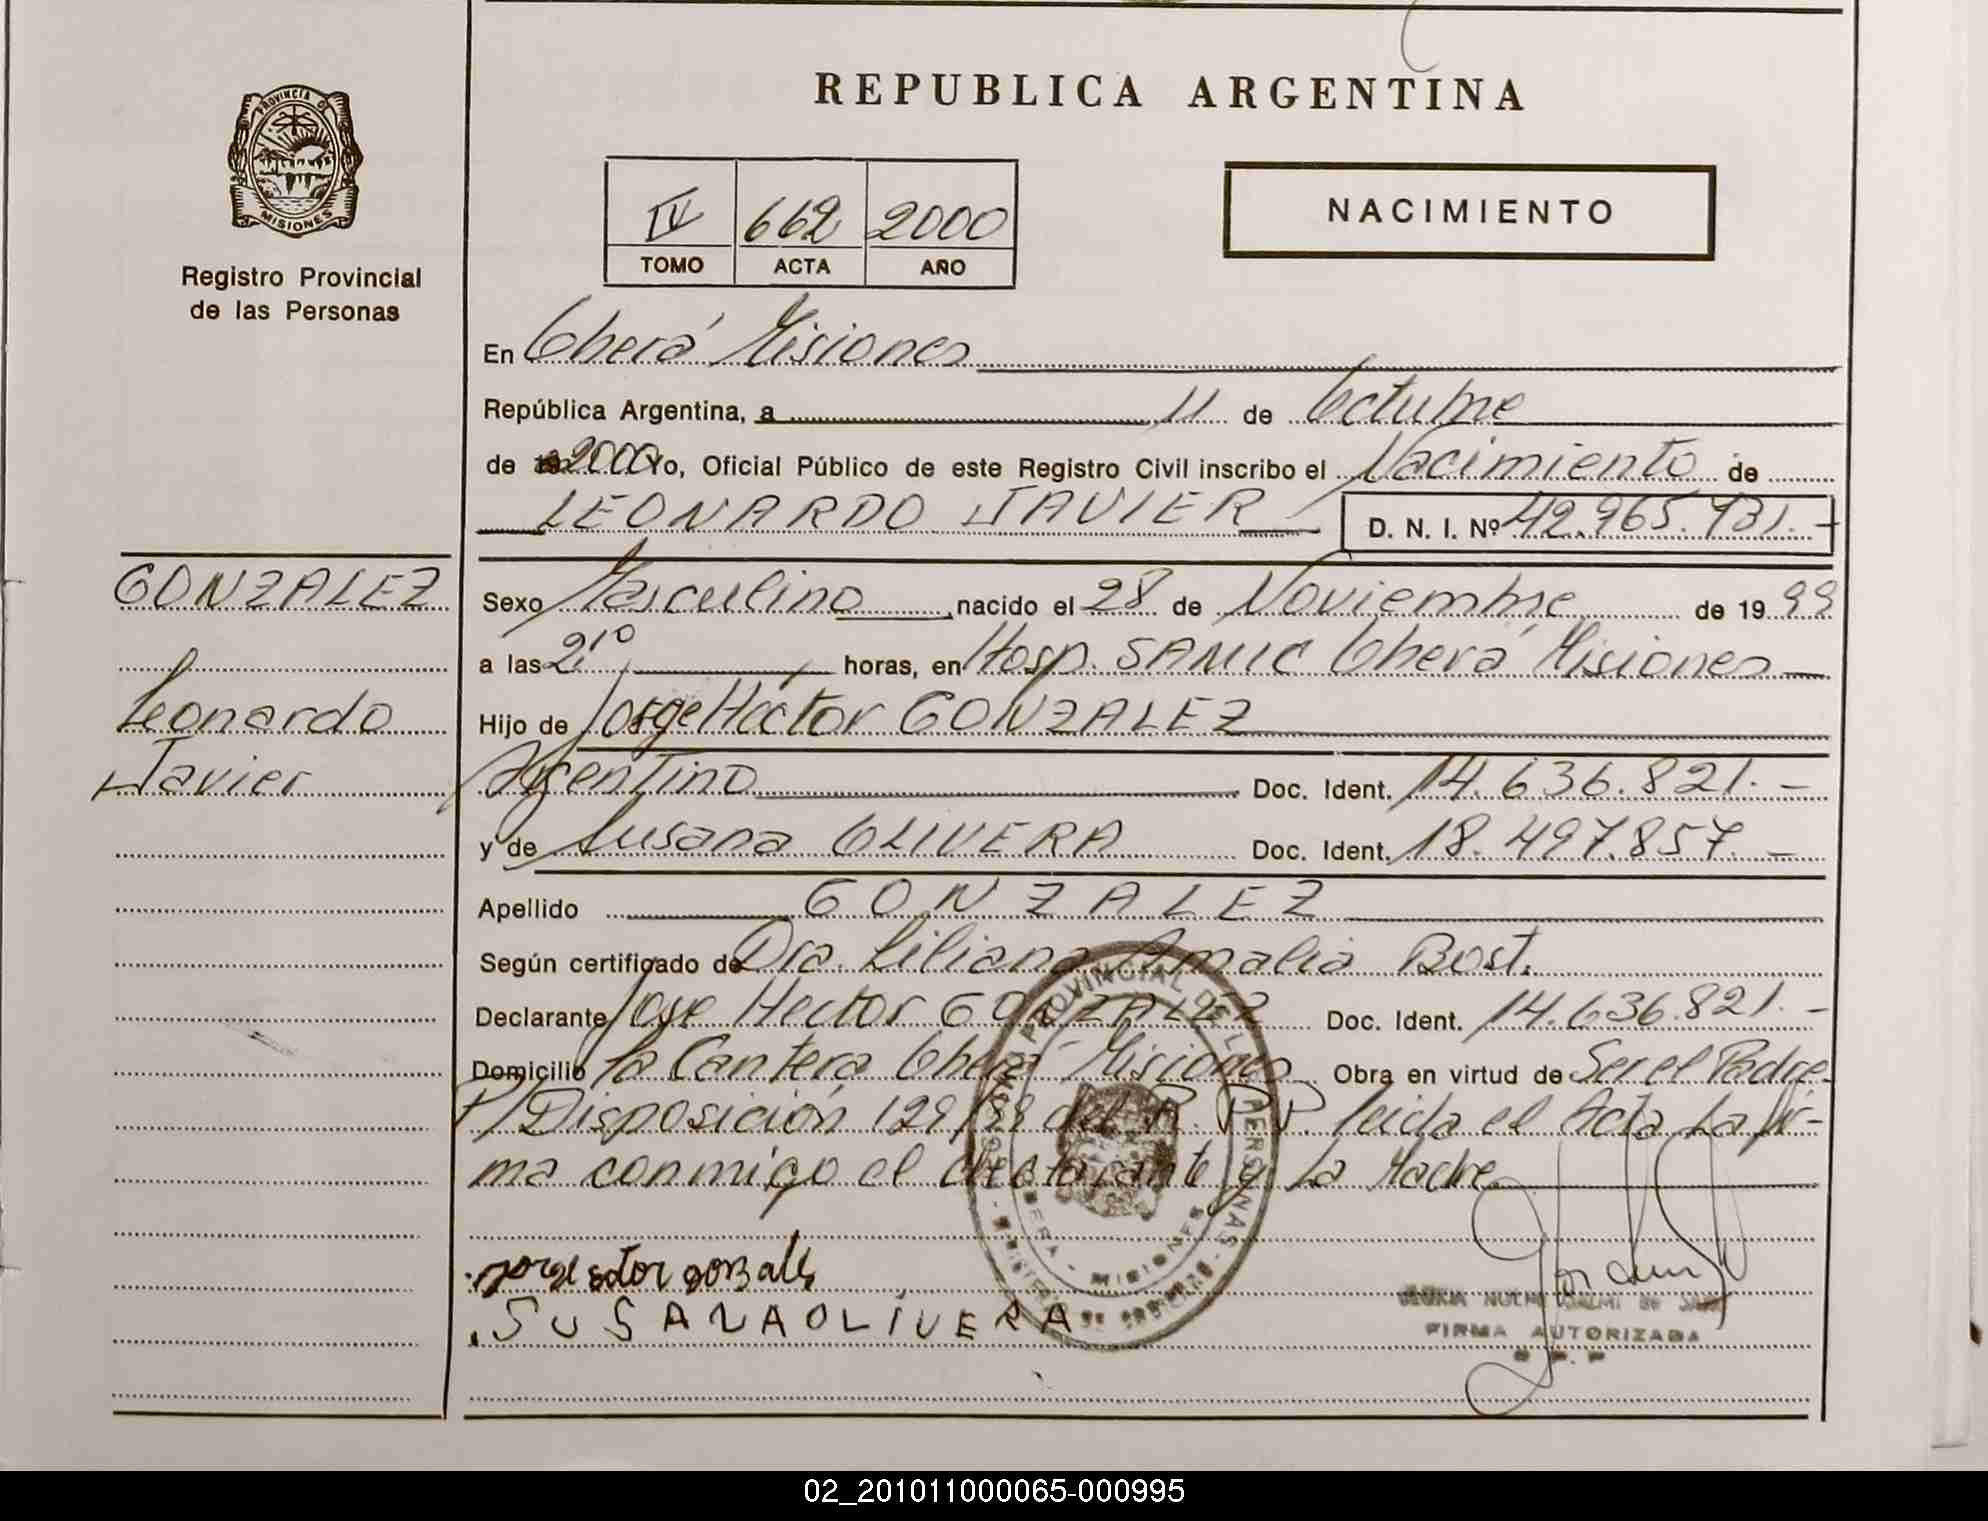 PROVINCIA DE
MISIONES
Registro Provincial
de las Personas
GONZALEZ
Leonardo
Javier
REPUBLICA ARGENTINA
IV 662 2000
TOMO ACTA AÑO
NACIMIENTO
En Oberá Misiones
República Argentina, a 11 de Octubre
de 2000 Yo, Oficial Público de este Registro Civil inscribo el Nacimiento de
LEONARDO JAVIER D. N. I. Nº 42.965.931.-
Sexo Masculino, nacido el 28 de Noviembre de 19 99
a las 21º horas, en Hosp. SAMIC Oberá Misiones
Hijo de Jorge Héctor GONZALEZ
Argentino Doc. Ident. 14.636.821.-
y de Susana OLIVERA Doc. Ident. 18.497.857.-
Apellido GONZALEZ
Según certificado de Dra. Liliana Amalia Bost.
Declarante Jose Hector GONZALEZ Doc. Ident. 14.636.821.-
Domicilio La Cantera Oberá Misiones Obra en virtud de Ser el Padre
P/Disposición 129/99 del R.P.P. leida el Acta La fir-
ma conmigo el declarante y la Madre
Jorge ector gonzales
SUSANA OLIVERA
PROVINCIAL DE LAS PERSONAS
OBERA - MISIONES
FIRMA AUTORIZADA
R. P. P
02_201011000065-000995